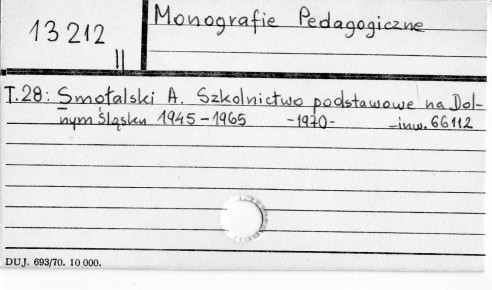 13 212
II
Monografie Pedagogiczne
T.28: Smołalski A. Szkolnictwo podstawowe na Dol-
nym Śląsku 1945-1965 -1970- -inw. 66112
DUJ. 693/70. 10 000.